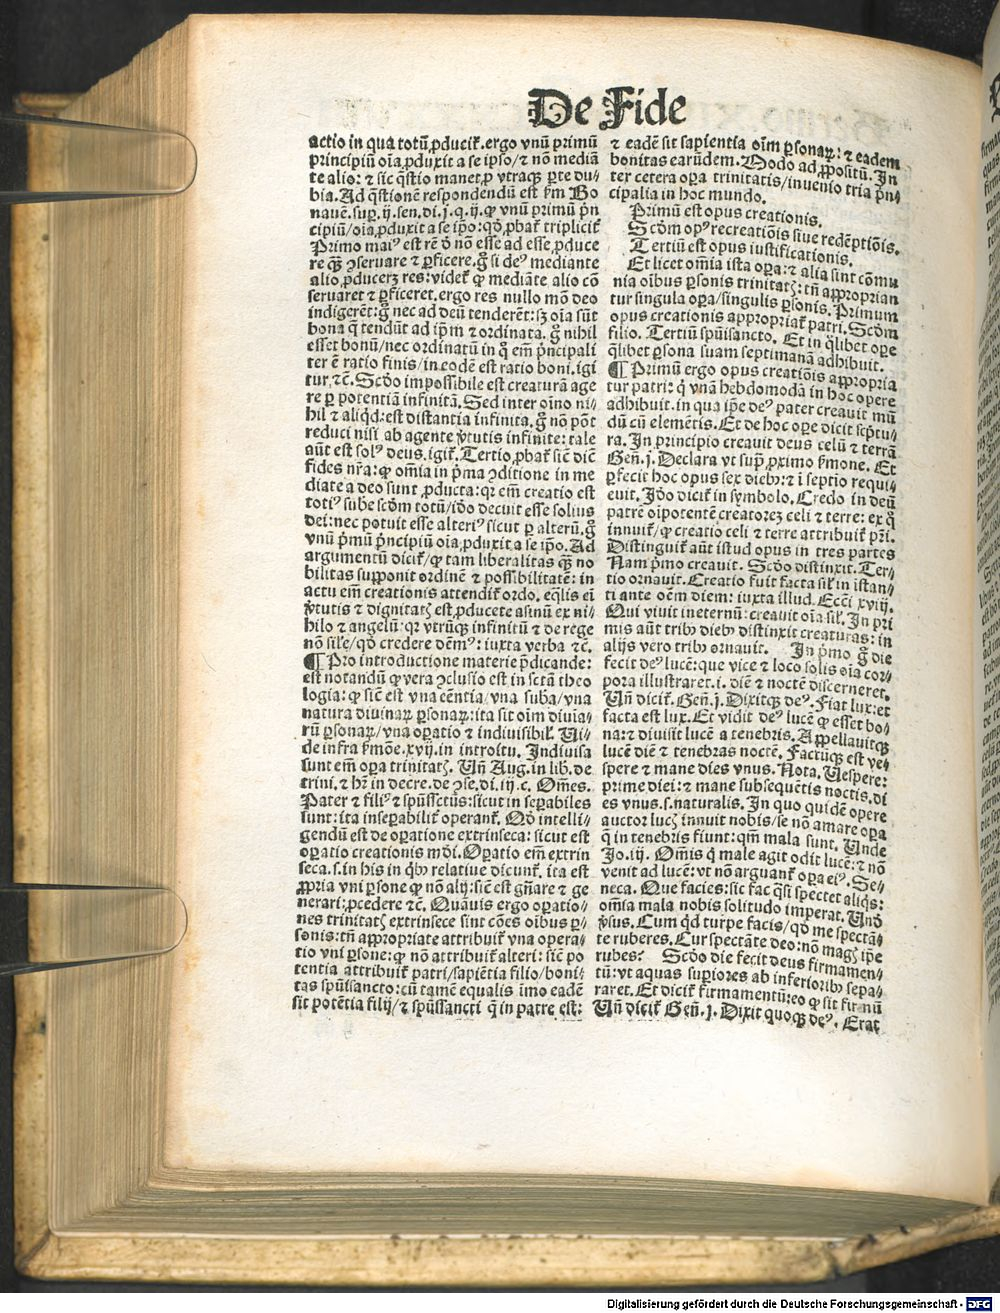 De Fide
actio in qua totū ꝓducit᷑.ergo vnū primū
principiū oīa ꝓduxit a se ipso/⁊ nō mediā
te alio: ⁊ sic q̄stio manet ꝓ vtraqꝫ ꝑte du⸗
bia. Ad q̄stionē respondendū est ẜm Bo
nauē. suꝑ. ij. sen. di. j. q. ij. ꝙ vnū primū pn̄
cipiū/oīa ꝓduxit a se ip̄o: qḋ ꝓbat᷑ triplicit᷑
Primo maiꝰ est rē ꝺ nō esse ad esse ꝓduce
re qꝫ ꝯseruare ⁊ ꝑficere. g̊ si deꝰ mediante
alio ꝓducerꝫ res: videt᷑ ꝙ mediāte alio cō
seruaret ⁊ ꝑficeret. ergo res nullo mō deo
indigerēt: g̊ nec ad deū tenderēt: sꝫ oīa sūt
bona q̄ tendūt ad ip̄m ⁊ ordinata. g̊ nihil
esset bonū/nec ordinatū in q̊ em̄ pn̄cipali
ter ē ratio finis/in eodē est ratio boni. igi
tur ⁊c̄. Scḋo impossibile est creaturā age
re ꝑ potentiā infinitā. Sed inter oīno ni⸗
hil ⁊ aliqḋ: est distantia infinita. g̊ nō pōt
reduci nisi ab agente v̓tutis infinite: tale
aūt est solꝰ deus. igit᷑. Tertio ꝓbat᷑ sic̄ dic̄
fides nr̄a: ꝙ omīa in pͥma ꝯditione in me
diate a deo sunt ꝓducta: qꝛ em̄ creatio est
totiꝰ sube scḋm totū/iḋo decuit esse solius
dei: nec potuit esse alteriꝰ sicut ꝑ alterū. g̊
vnū pͥmū pͥncipiū oīa ꝓduxit a se ip̄o. Ad
argumentū dicit᷑/ꝙ tam liberalitas qꝫ̄ no
bilitas supponit ordinē ⁊ possibilitatē: in
actu em̄ creationis attendit᷑ ordo. eq̄lis eī
v̓tutis ⁊ dignitatꝭ est ꝓducete asinū ex ni⸗
hilo ⁊ angelū: qꝛ vtrūqꝫ infinitū ⁊ de rege
nō sile/qḋ credere dēmꝰ: iuxta verba ⁊c̄.
¶ Pro introductione materie p̄dicande:
est notandū ꝙ vera ꝯclusio est in sctā theo
logia: ꝙ sic̄ est vna eēntia/vna suba/vna
natura diuinaꝝ ꝑsonaꝝ: ita sit oīm diuia⸗
rū ꝑsonaꝝ/vna oꝑatio ⁊ indiuisibil. Ui⸗
de infra ẜmōe. xvij. in introitu. Indiuisa
sunt em̄ oꝑa trinitatꝭ. Un̄ Aug. in lib. de
trini. ⁊ hr̄ in decre. de ꝯse. di. iij. c. Om̄es.
Pater ⁊ filiꝰ ⁊ spūssctūs: sicut in seꝑabiles
sunt: ita inseꝑabilit᷑ operant᷑. Qḋ intelli⸗
gendū est de oꝑatione extrinseca: sicut est
oꝑatio creationis mōi. Oꝑatio em̄ extrin
seca. s. in his in qͥbꝰ relatiue dicunt᷑. ita est
ꝓpria vni ꝑsone ꝙ nō alij: sic̄ est gn̄are ⁊ ge
nerari: ꝓcedere ⁊c̄. Quāuis ergo oꝑatio⸗
nes trinitatꝭ extrinsece sint cōes oibus ꝑ⸗
sonis: tn̄ appropriate attribuit᷑ vna opera⸗
tio vni ꝑsone: ꝙ nō attribuit᷑ alteri: sic̄ po
tentia attribuit᷑ patri/sapiētia filio/boni⸗
tas spūissancto: cū tamē equalis īmo eadē
sit potētia filij/⁊ spūssancti q̄ in patre est:
⁊ eadē sit sapientia oīm ꝑsonaꝝ: ⁊ eadem
bonitas earūdem. Modo ad ꝓpositū. In
ter cetera oꝑa trinitatis/inuenio tria pn̄⸗
cipalia in hoc mundo.
Primū est opus creationis.
Scḋm opꝰ recreatiōis siue redēptiōis.
Tertiū est opus iustificationis.
Et licet omīa ista oꝑa: ⁊ alia sint cōmu
nia oībus ꝑsonis trinitatꝭ: tn̄ approprian
tur singula oꝑa/singulis ꝑsonis. Primum
opus creationis appropriat᷑ patri. Scḋm
filio. Tertiū spūisancto. Et in qͥlibet oꝑe
q̄libet ꝑsona suam septimanā adhibuit.
¶ Primū ergo opus creatiōis appropria
tur patri: qͥ vnā hebdomodā in hoc opere
adhibuit. in qua ip̄e deꝰ pater creauit mū
dū cū elemētis. Et de hoc oꝑe dicit sc̄ptu⸗
ra. In principio creauit deus celū ⁊ terrā
Gen̄. j. Declara vt sup̄ ꝓximo ẜmone. Et
ꝑfecit hoc opus sex diebꝰ: ⁊ ī septio requi⸗
euit. Iḋo dicit᷑ in symbolo. Credo in deū
patrē oīpotentē creatoreꝫ celi ⁊ terre: ex q̊
innuit᷑/ꝙ creatio celi ⁊ terre attribuit᷑ pr̄i.
Distinguit᷑ aūt istud opus in tres partes
Nam pͥmo creauit. Scḋo distinxit. Ter⸗
tio ornauit. Creatio fuit facta sil᷑ in istan⸗
ti ante oēm diem: iuxta illud. Ecci xviij.
Qui viuit ineternū: creauit oīa sil᷑. In pri
mis aūt tribꝰ diebꝰ distinxit creaturas: in
alijs vero tribꝰ ornauit. In pͥmo g̊ die
fecit deꝰ lucē: que vice ⁊ loco solis oīa cor⸗
pora illustraret. i. diē ⁊ noctē discerneret.
Un̄ dicit᷑. Gen̄. j. Dixitqꝫ deꝰ. Fiat lux: et
facta est lux. Et vidit deꝰ lucē ꝙ esset bo⸗
na: ⁊ diuisit lucē a tenebris. Appellauitqꝫ
lucē diē ⁊ tenebras noctē. Factūqꝫ est ve⸗
spere ⁊ mane dies vnus. Nota. Uespere:
prime diei: ⁊ mane subsequētis noctis. di
es vnus. s. naturalis. In quo quidē opere
auctor lucꝭ innuit nobis/se nō amare oꝑa
q̄ in tenebris fiunt: qm̄ mala sunt. Unde
Jo. iij. Om̄is qͥ male agit odit lucē: ⁊ nō
venit ad lucē: vt nō arguant᷑ oꝑa eiꝰ. Se⸗
neca. Que facies: sic fac q̄si spectet aliqs:
omīa mala nobis solitudo imperat. Unḋ
v̓sus. Cum qḋ turpe facis/qḋ me spectā⸗
te ruberes. Cur spectāte deo: nō magꝭ ip̄e
rubes? Scḋo die fecit deus firmamen⸗
tū: vt aquas suꝑiores ab inferioribꝰ sepa⸗
raret. Et dicit᷑ firmamentū: eo ꝙ sit firmū
Un̄ dicit᷑ Gen̄. j. Dixit quoqꝫ deꝰ. Erat